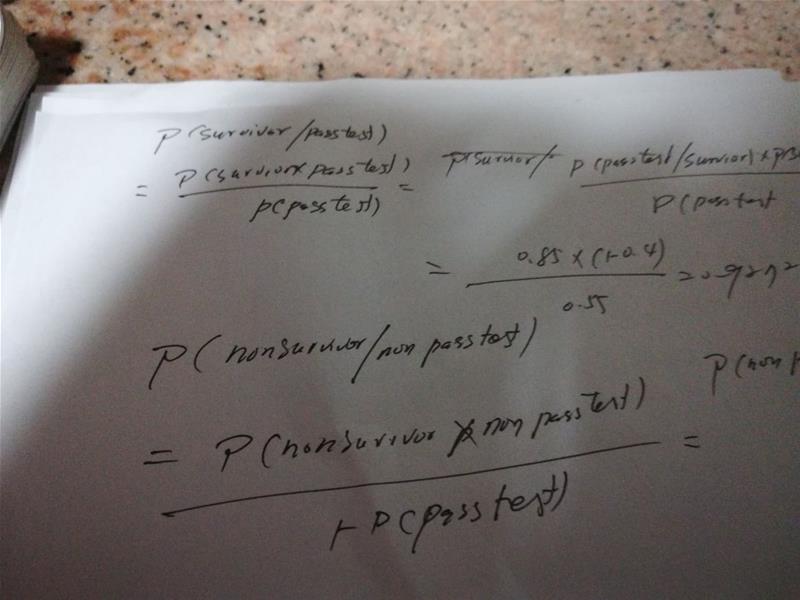 P(survivor/passtest)
= P(survivor x passtest) / P(passtest) = P(survivor/ P(passtest/survivor) x P(S / P(passtest
= 0.85 x (1-0.4) / 0.55 = 0.9272
P(nonsurvivor/non passtest)
= P(nonsurvivor x non passtest) / 1-P(passtest) = P(non